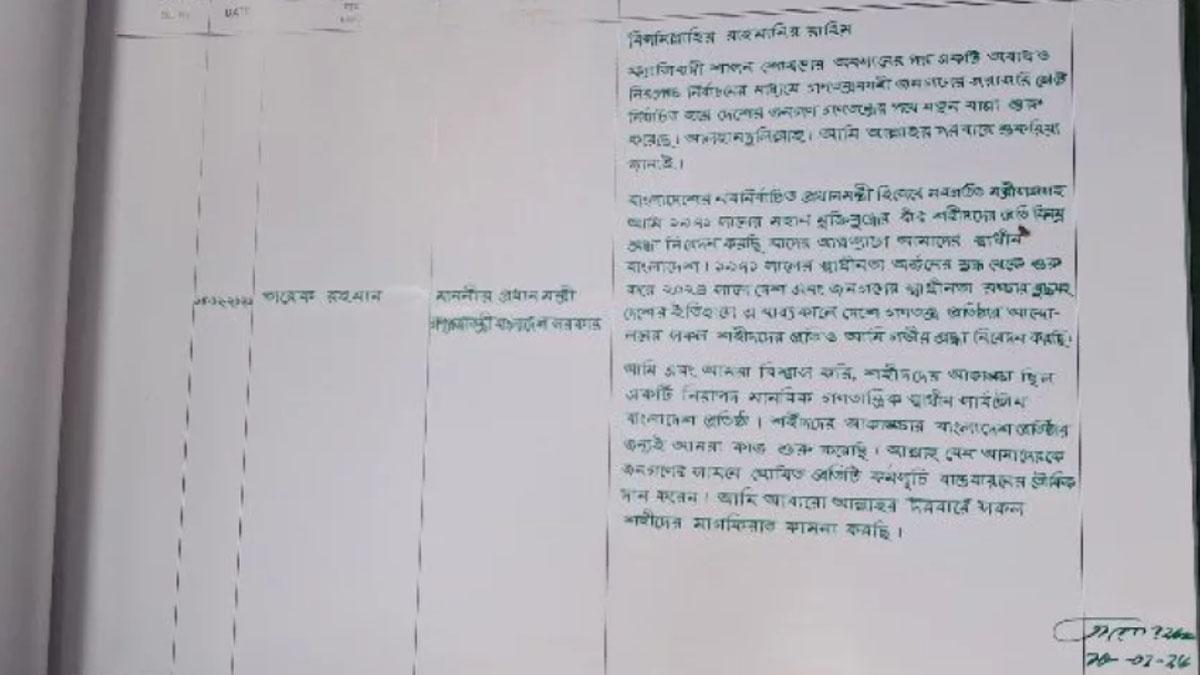 SL. No
DATE
বিসমিল্লাহির রাহমানির রাহিম
ফ্যাসিবাদী শাসন শোষণের অবসানের পর একটি অবাধ ও
নিরপেক্ষ নির্বাচনের মাধ্যমে গণতন্ত্রকামী জনগণের সরাসরি ভোটে
নির্বাচিত হয়ে দেশের জনগণ গণতন্ত্রের পথে নতুন যাত্রা শুরু
করেছে। আলহামদুলিল্লাহ। আমি আল্লাহর দরবারে শুকরিয়া
জানাই।
বাংলাদেশের নবনির্বাচিত প্রধানমন্ত্রী হিসেবে নবগঠিত মন্ত্রীসভাসহ
আমি ১৯৭১ সালের মহান মুক্তিযুদ্ধের বীর শহীদদের প্রতি বিনম্র
শ্রদ্ধা নিবেদন করছি যাদের আত্মত্যাগে আমাদের স্বাধীন
বাংলাদেশ। ১৯৭১ সালের স্বাধীনতা অর্জনের যুদ্ধ থেকে শুরু
করে ২০২৪ সালে দেশ এবং জনগণের স্বাধীনতা রক্ষার যুদ্ধসহ
দেশের ইতিহাসে এ যাবৎকালে দেশে গণতন্ত্র প্রতিষ্ঠার আন্দো-
লনের সকল শহীদদের প্রতিও আমি গভীর শ্রদ্ধা নিবেদন করছি।
আমি এবং আমরা বিশ্বাস করি, শহীদদের আকাঙ্ক্ষা ছিল
একটি নিরাপদ মানবিক গণতান্ত্রিক স্বাধীন সার্বভৌম
বাংলাদেশ প্রতিষ্ঠা। শহীদদের আকাঙ্ক্ষার বাংলাদেশ প্রতিষ্ঠার
জন্যই আমরা কাজ শুরু করেছি। আল্লাহ যেন আমাদেরকে
জনগণের সামনে ঘোষিত প্রতিটি কর্মসূচি বাস্তবায়নের তৌফিক
দান করেন। আমি আবারো আল্লাহর দরবারে সকল
শহীদের মাগফিরাত কামনা করছি।
তারেক রহমান
মাননীয় প্রধান মন্ত্রী
গণপ্রজাতন্ত্রী বাংলাদেশ সরকার